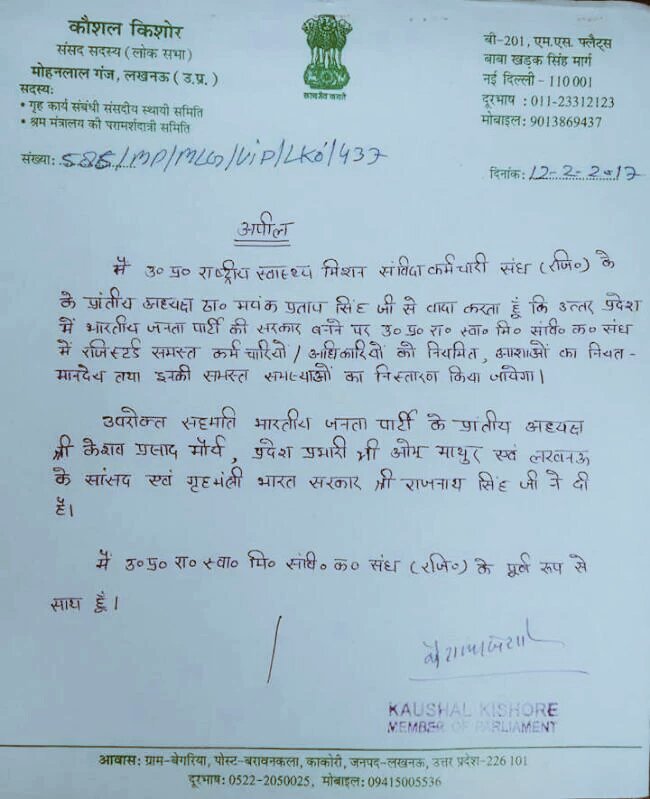 कौशल किशोर
संसद सदस्य (लोक सभा)
मोहनलाल गंज, लखनऊ (उ.प्र.)
सदस्य:
• गृह कार्य संबंधी संसदीय स्थायी समिति
• श्रम मंत्रालय की परामर्शदात्री समिति
संख्या: 585/MP/MLG/VIP/LKO/437
सत्यमेव जयते
बी-201, एम.एस. फ्लैट्स
बाबा खड़क सिंह मार्ग
नई दिल्ली - 110 001
दूरभाष : 011-23312123
मोबाइल: 9013869437
दिनांक: 12-2-2017
अपील
मैं उ० प्र० राष्ट्रीय स्वास्थ्य मिशन संविदा कर्मचारी संघ (रजि०) के
के प्रांतीय अध्यक्ष डा० मयंक प्रताप सिंह जी से वादा करता हूँ कि उत्तर प्रदेश
में भारतीय जनता पार्टी की सरकार बनने पर उ० प्र० रा० स्वा० मि० संवि० क० संघ
में रजिस्टर्ड समस्त कर्मचारियों / अधिकारियों को नियमित, आशाओं का नियत-
मानदेय तथा इनकी समस्त समस्याओं का निस्तारण किया जायेगा।
उपरोक्त सहमति भारतीय जनता पार्टी के प्रांतीय अध्यक्ष
श्री केशव प्रसाद मौर्य, प्रदेश प्रभारी श्री ओम माथुर एवं लखनऊ
के सांसद एवं गृहमंत्री भारत सरकार श्री राजनाथ सिंह जी ने दी
है।
मैं उ० प्र० रा० स्वा० मि० संवि० क० संघ (रजि०) के पूर्ण रूप से
साथ हूँ।
KAUSHAL KISHORE
MEMBER OF PARLIAMENT
आवास: ग्राम-बेगरिया, पोस्ट-बरावनकला, काकोरी, जनपद-लखनऊ, उत्तर प्रदेश-226 101
दूरभाष: 0522-2050025, मोबाइल: 09415005536